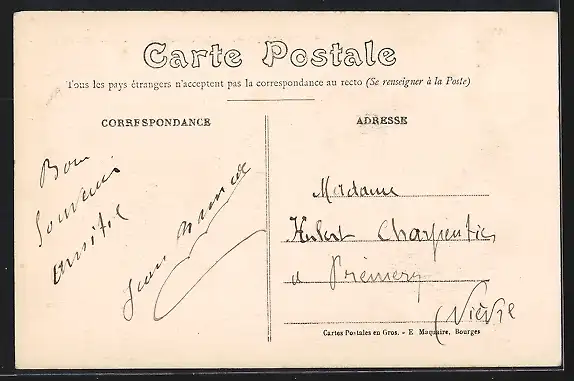 Carte Postale
Tous les pays étrangers n'acceptent pas la correspondance au recto (Se renseigner à la Poste)
CORRESPONDANCE
ADRESSE
Bon
Souvenir
amitié
Jean
Madame
Hubert Charpentier
à Prémery
(Nièvre
Cartes Postales en Gros. - E. Maquaire, Bourges